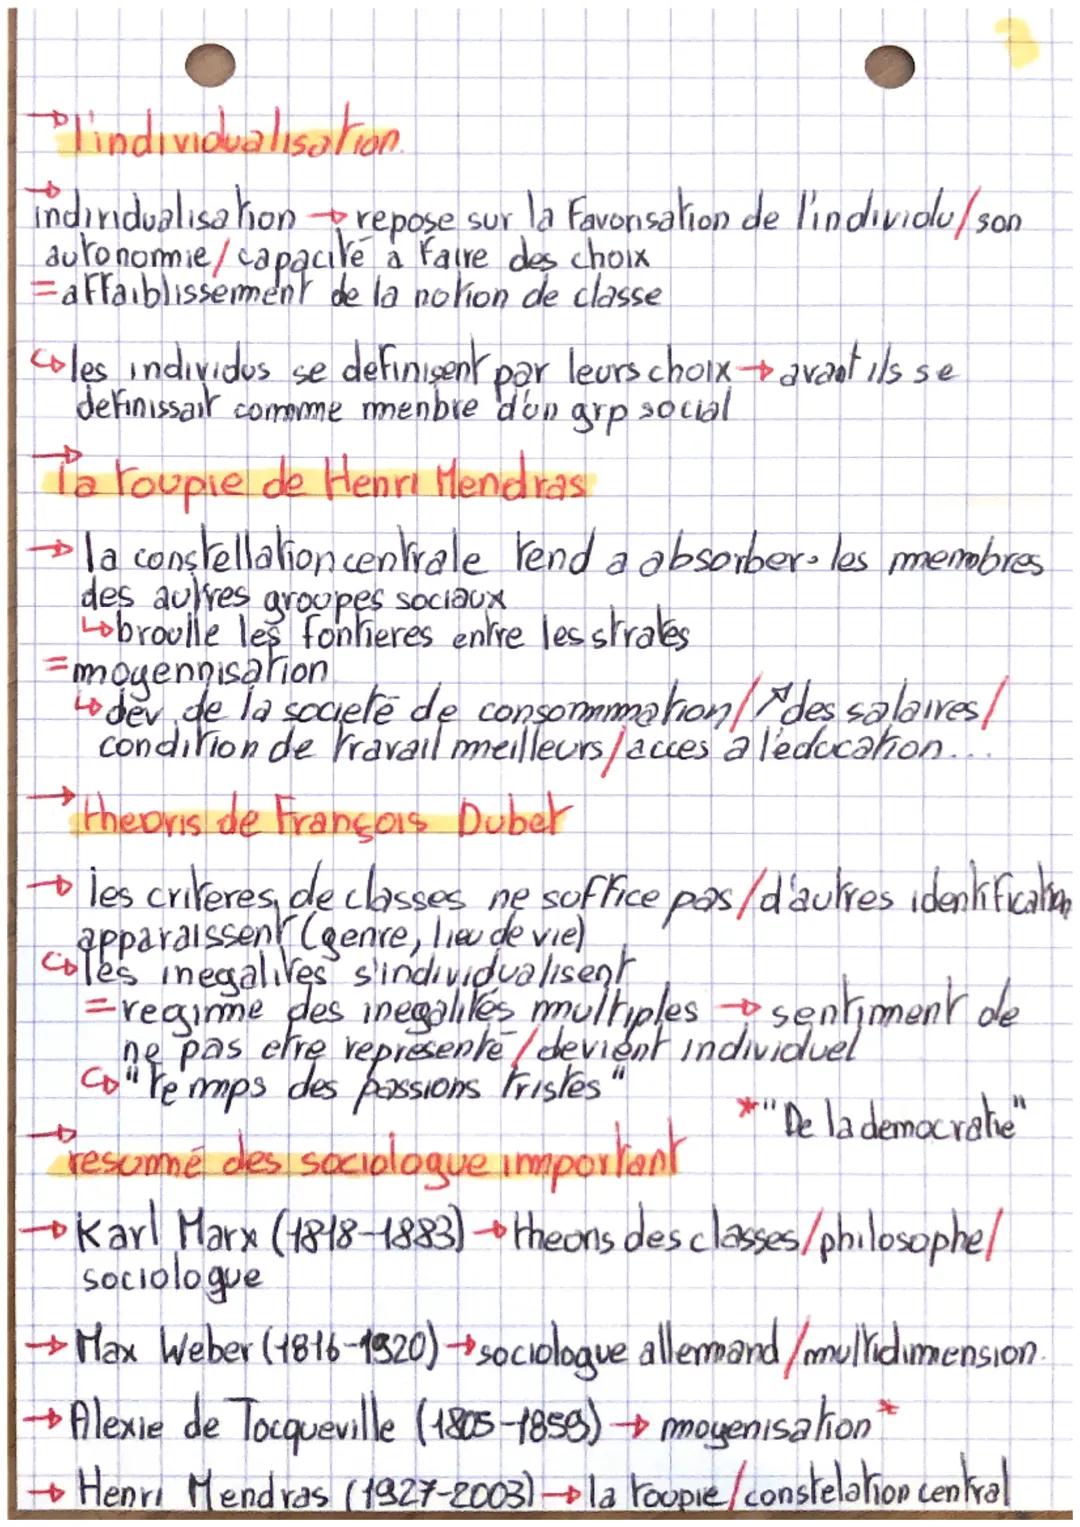 → l'individualisation.
→ individualisation → repose sur la favorisation de l'individu/son
autonomie/capacité a faire des choix
= affaiblissement de la notion de classe
↳ les individus se definisent par leurs choix → avant ils se
definissait comme menbre d'un grp social
→ la toupie de Henri Mendras
→ la constellation centrale tend a absorber les membres
des autres groupes sociaux
↳ brouille les fontieres entre les strates
= moyennisation
↳ dév de la societé de consommation/↗ des salaires/
condition de travail meilleurs/acces a l'éducation...
→ theoris de François Dubet
→ les criteres de classes ne soffice pas/d'autres identification
apparaissent (genre, lieu de vie)
↳ les inegalités s'individualisent
= regime des inegalités multiples → sentiment de
ne pas etre représenté/devient individuel
↳ "Temps des passions tristes"
*"De la democratie"
→ resumé des sociologue important
→ Karl Marx (1818-1883) → theoris des classes/philosophe/
sociologue
→ Max Weber (1816-1920) → sociologue allemand/multidimension.
→ Alexie de Tocqueville (1805-1859) → moyenisation*
→ Henri Mendras (1927-2003) → la toupie/constelation central